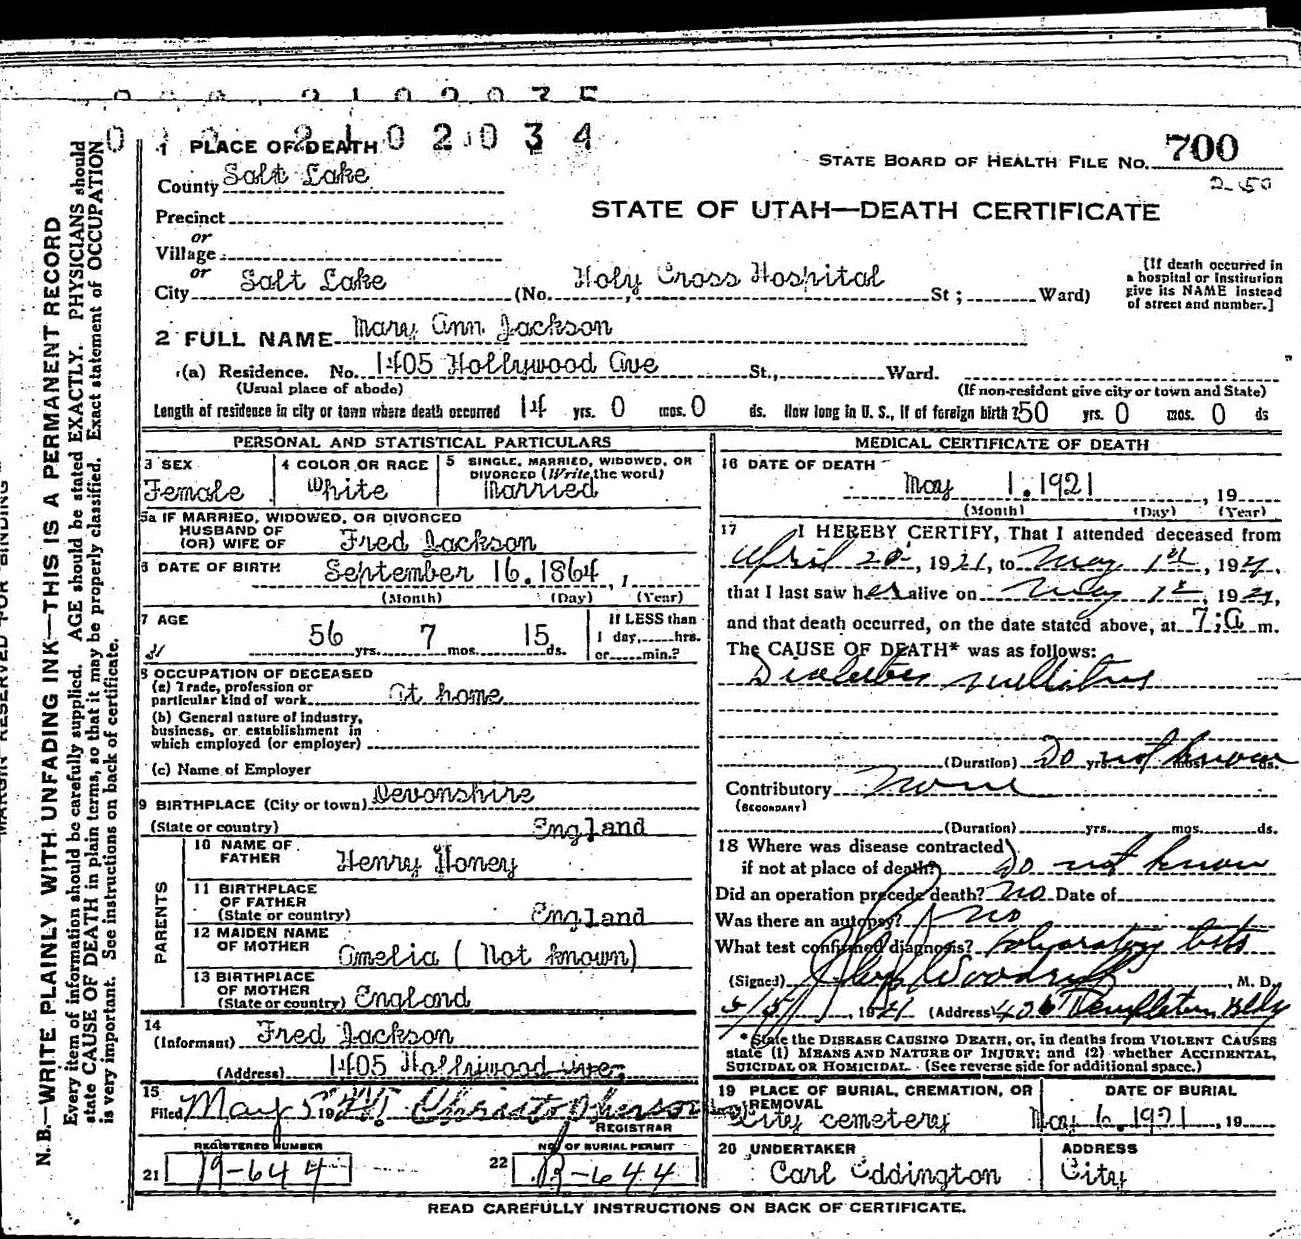 0 2 1 0 2 0 3 4
1 PLACE OF DEATH
STATE BOARD OF HEALTH FILE NO. 700
County Salt Lake
2-50
Precinct
STATE OF UTAH—DEATH CERTIFICATE
or
Village
or
City Salt Lake (No. Holy Cross Hospital St; Ward)
[If death occurred in
a hospital or institution
give its NAME instead
of street and number.]
2 FULL NAME Mary Ann Jackson
(a) Residence. No. 1405 Hollywood Ave St., Ward.
(Usual place of abode) (If non-resident give city or town and State)
Length of residence in city or town where death occurred 14 yrs. 0 mos. 0 ds. How long in U. S., if of foreign birth? 50 yrs. 0 mos. 0 ds
PERSONAL AND STATISTICAL PARTICULARS
3 SEX
Female
4 COLOR OR RACE
White
5 SINGLE, MARRIED, WIDOWED, OR
DIVORCED (Write the word)
Married
5a IF MARRIED, WIDOWED, OR DIVORCED
HUSBAND OF
(OR) WIFE OF Fred Jackson
6 DATE OF BIRTH September 16. 1864, 1
(Month) (Day) (Year)
7 AGE
56 yrs. 7 mos. 15 ds.
If LESS than
1 day, hrs.
or min.?
8 OCCUPATION OF DECEASED
(a) Trade, profession or
particular kind of work At home
(b) General nature of industry,
business, or establishment in
which employed (or employer)
(c) Name of Employer
9 BIRTHPLACE (City or town) Devonshire
(State or country) England
PARENTS
10 NAME OF
FATHER Henry Honey
11 BIRTHPLACE
OF FATHER
(State or country) England
12 MAIDEN NAME
OF MOTHER Amelia (Not known)
13 BIRTHPLACE
OF MOTHER
(State or country) England
14
(Informant) Fred Jackson
(Address) 1405 Hollywood ave,
15
Filed May 5 19
Christopherson
REGISTRAR
REGISTERED NUMBER
21 19-644
NO. OF BURIAL PERMIT
22 B-644
MEDICAL CERTIFICATE OF DEATH
16 DATE OF DEATH
May 1. 1921, 19
(Month) (Day) (Year)
17 I HEREBY CERTIFY, That I attended deceased from
April 20, 1921, to May 1st, 1921,
that I last saw her alive on May 1st, 1921,
and that death occurred, on the date stated above, at 7:A m.
The CAUSE OF DEATH* was as follows:
Diabetes mellitus
(Duration) Do not know yrs. mos. ds.
Contributory None
(SECONDARY)
(Duration) yrs. mos. ds.
18 Where was disease contracted
if not at place of death? Do not know
Did an operation precede death? no Date of
Was there an autopsy? no
What test confirmed diagnosis? Laboratory tests
(Signed) Woodruff, M. D.
5/5/, 1921 (Address) 406 Templeton Bldg
* State the DISEASE CAUSING DEATH, or, in deaths from VIOLENT CAUSES
state (1) MEANS AND NATURE OF INJURY; and (2) whether ACCIDENTAL,
SUICIDAL OR HOMICIDAL. (See reverse side for additional space.)
19 PLACE OF BURIAL, CREMATION, OR
REMOVAL
City cemetery
DATE OF BURIAL
May 6. 1921, 19
20 UNDERTAKER
Carl Eddington
ADDRESS
City
READ CAREFULLY INSTRUCTIONS ON BACK OF CERTIFICATE.
MARGIN RESERVED FOR BINDING
N. B.—WRITE PLAINLY WITH UNFADING INK—THIS IS A PERMANENT RECORD
Every item of information should be carefully supplied. AGE should be stated EXACTLY. PHYSICIANS should
state CAUSE OF DEATH in plain terms, so that it may be properly classified. Exact statement of OCCUPATION
is very important. See instructions on back of certificate.